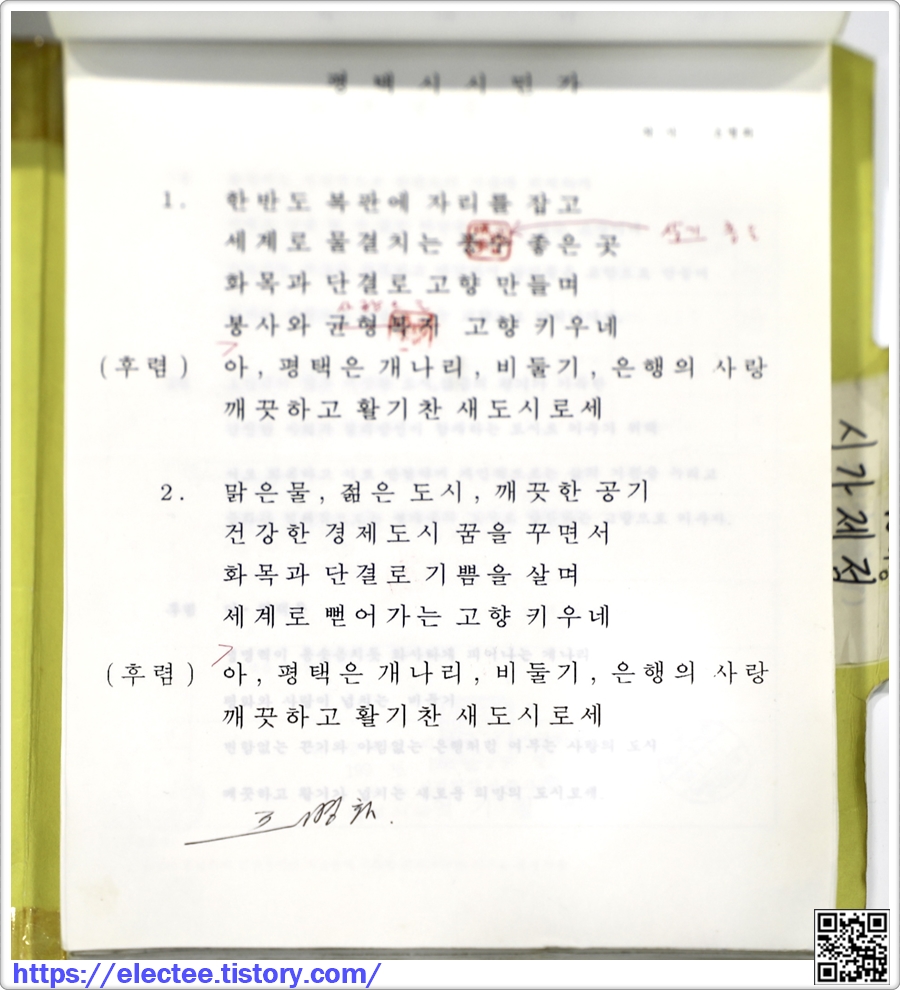 평 택 시 시 민 가
1. 한반도 복판에 자리를 잡고
세계로 물결치는 좋은 곳
화목과 단결로 고향 만들며
봉사와 균형 고향 키우네
(후렴) 아, 평택은 개나리, 비둘기, 은행의 사랑
깨끗하고 활기찬 새도시로세
2. 맑은물, 젊은 도시, 깨끗한 공기
건강한 경제도시 꿈을 꾸면서
화목과 단결로 기쁨을 살며
세계로 뻗어가는 고향 키우네
(후렴) 아, 평택은 개나리, 비둘기, 은행의 사랑
깨끗하고 활기찬 새도시로세
시가제정
https://electee.tistory.com/